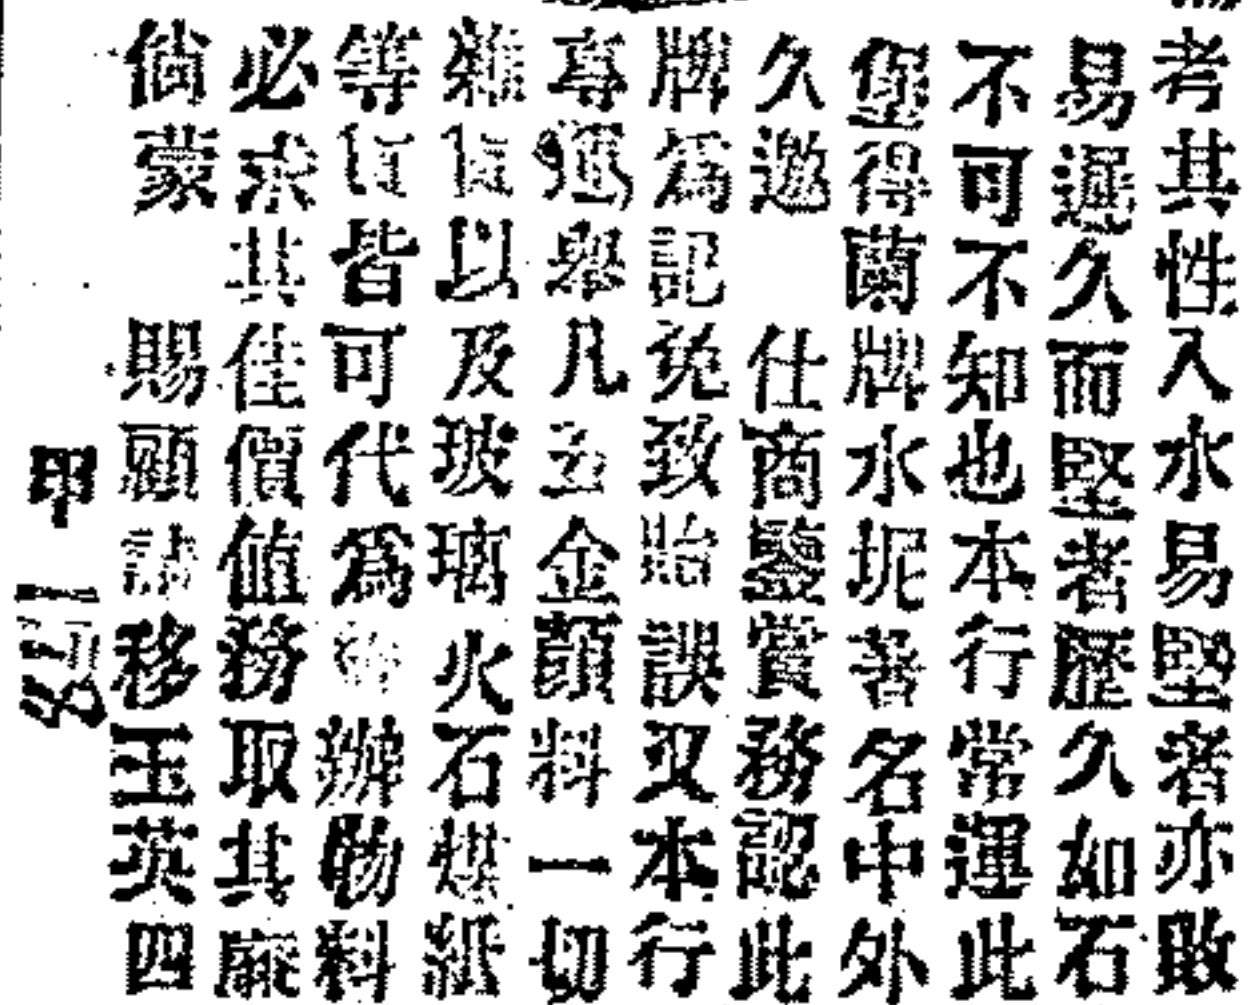 考其性入水易堅者亦敗
易遲久而堅者歷久如石
不可不知也本行常運此
堡得蘭牌水坭著名中外
久邀 仕商鑒賞務認此
牌為記免致貽誤又本行
專運舉凡五金顏料一切
雜貨以及玻璃火石煤紙
等貨皆可代為辦物料
必求其佳價值務取其廉
倘蒙 賜顧請移玉英四
甲